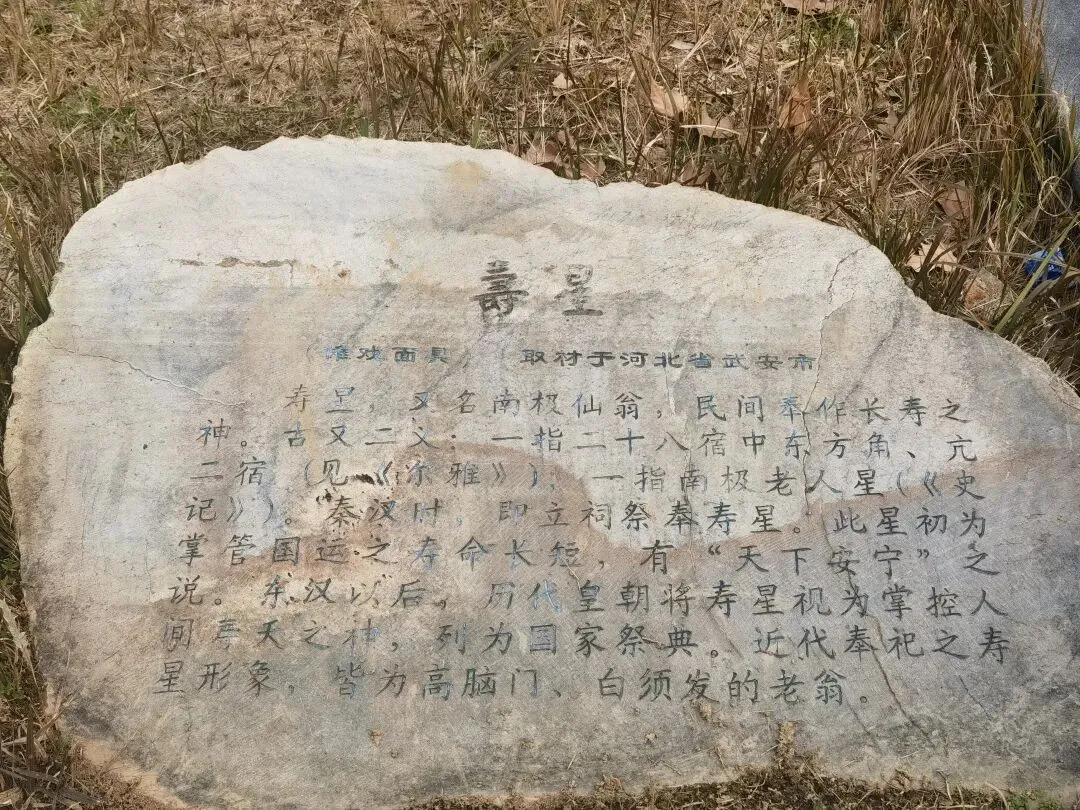 壽星
（傩戏面具）（取材于河北省武安市
寿星，又名南极仙翁，民间奉作长寿之
神。古又二义：一指二十八宿中东方角、亢
二宿（见《尔雅》），一指南极老人星（《史
记》）。秦汉时，即立祠祭奉寿星。此星初为
掌管国运之寿命长短，有“天下安宁”之
说。东汉以后，历代皇朝将寿星视为掌控人
间寿夭之神，列为国家祭典。近代奉祀之寿
星形象，皆为高脑门、白须发的老翁。